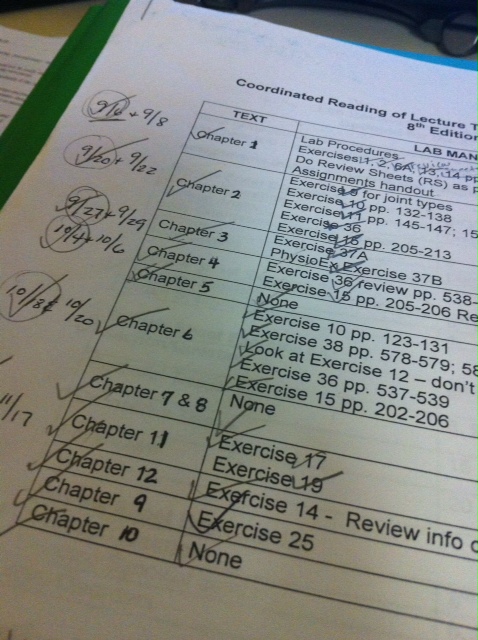 Coordinated Reading of Lecture T
8th Edition
TEXT
LAB MAN
9/6 + 9/8
Chapter 1
Lab Procedures
Exercises 1, 2, 13, 14 pp
Do Review Sheets (RS) as p
Assignments handout
9/20 + 9/22
Chapter 2
Exercise for joint types
Exercise 10 pp. 132-138
Exercise 11 pp. 145-147; 15
Exercise 36
9/27 + 9/29
Chapter 3
Exercise pp. 205-213
Exercise 37A
10/4 + 10/6
Chapter 4
PhysioEx Exercise 37B
Exercise 36 review pp. 538-
Chapter 5
Exercise 15 pp. 205-206 Re
None
10/18 & 10/20
Chapter 6
Exercise 10 pp. 123-131
Exercise 38 pp. 578-579; 58
Look at Exercise 12 – don't
Exercise 36 pp. 537-539
Exercise 15 pp. 202-206
Chapter 7 & 8
None
11/17
Chapter 11
Exercise 17
Exercise 19
Chapter 12
Exercise 14 - Review info o
Chapter 9
Exercise 25
Chapter 10
None